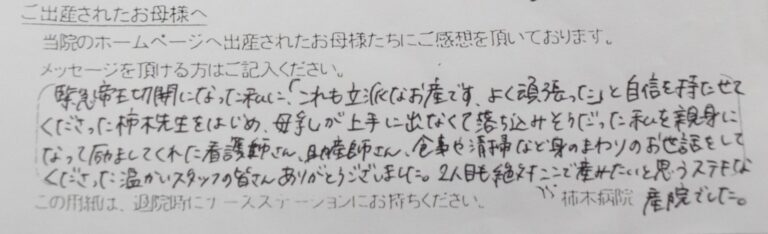 ご出産されたお母様へ
当院のホームページへ出産されたお母様たちにご感想を頂いております。
メッセージを頂ける方はご記入ください。
緊急帝王切開になった私に、「これも立派なお産です、よく頑張った」と自信を持たせて
くださった柿木先生をはじめ、母乳が上手に出なくて落ち込みそうだった私を親身に
なって励ましてくれた看護師さん、助産師さん、食事や清掃など身のまわりのお世話をして
くださった温かいスタッフの皆さんありがとうございました。2人目も絶対ここで産みたいと思うステキな
産院でした。
この用紙は、退院時にナースステーションにお持ちください。 柿木病院